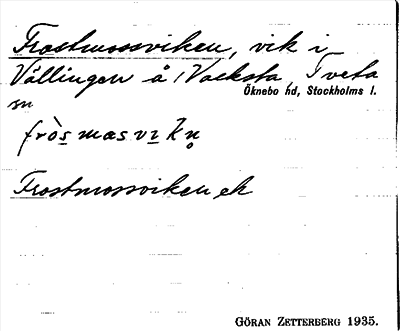 Frostmossviken, vik i
Vällingen å /Vacksta Tveta
Öknebo hd, Stockholms l.
sn
frò̱s mas vi̱ kn̥
Frostmossviken ek
GÖRAN ZETTERBERG 1935.